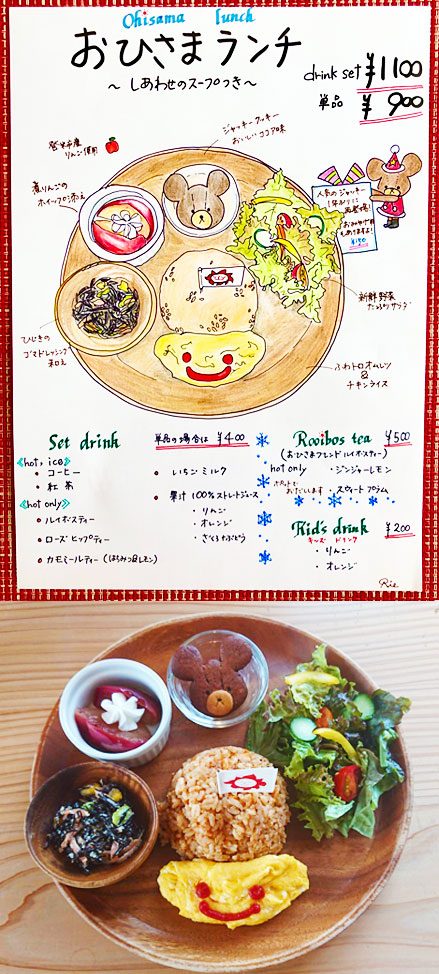 Ohisama lunch
おひさまランチ
～しあわせのスープつき～
drink set ¥1100
単品 ¥900
ジャッキークッキー
おいしいココア味
りんご使用
煮りんごの
ホイップクリン添え
人気のジャッキー
おみやげ用
もあります!
¥150
新鮮野菜
たっぷりサラダ
ひじきの
ゴマドレッシング
和え
ふわトロオムレツ
&
チキンライス
Set drink
単品の場合は ¥400
《hot, ice》
・コーヒー
・紅茶
《hot only》
・ルイボスティー
・ローズヒップティー
・カモミールティー (はちみつ&レモン)
・いちごミルク
・果汁100%ストレートジュース
・りんご
・オレンジ
・ざくろ
Rooibos tea ¥500
(おひさまブレンドルイボスティー)
hot only ・ジンジャーレモン
ポットで
おだしします ・スウィートプラム
Kid's drink ¥200
キッズ ドリンク
・りんご
・オレンジ
Rie